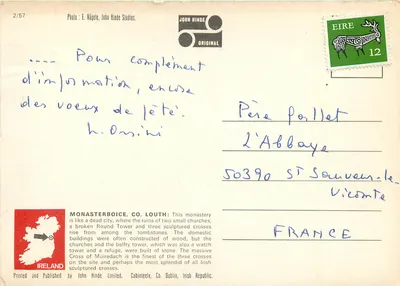 2/57
Photo : E. Nägele, John Hinde Studios.
JOHN HINDE
ORIGINAL
EIRE
12
.... Pour complément
d'information, encore
des voeux de fêté.
Père Paillet
L'Abbaye
50390 St Sauveur-le-
Vicomte
FRANCE
IRELAND
MONASTERBOICE, CO. LOUTH: This monastery
is like a dead city, where the ruins of two small churches,
a broken Round Tower and three sculptured crosses
rise from among the tombstones. The domestic
buildings were often constructed of wood, but the
churches and the belfry tower, which was also a watch
tower and a refuge, were built of stone. The massive
Cross of Muiredach is the finest of the three crosses
on the site and perhaps the most splendid of all Irish
sculptured crosses.
Printed and Published by John Hinde Limited, Cabinteely, Co. Dublin, Irish Republic.